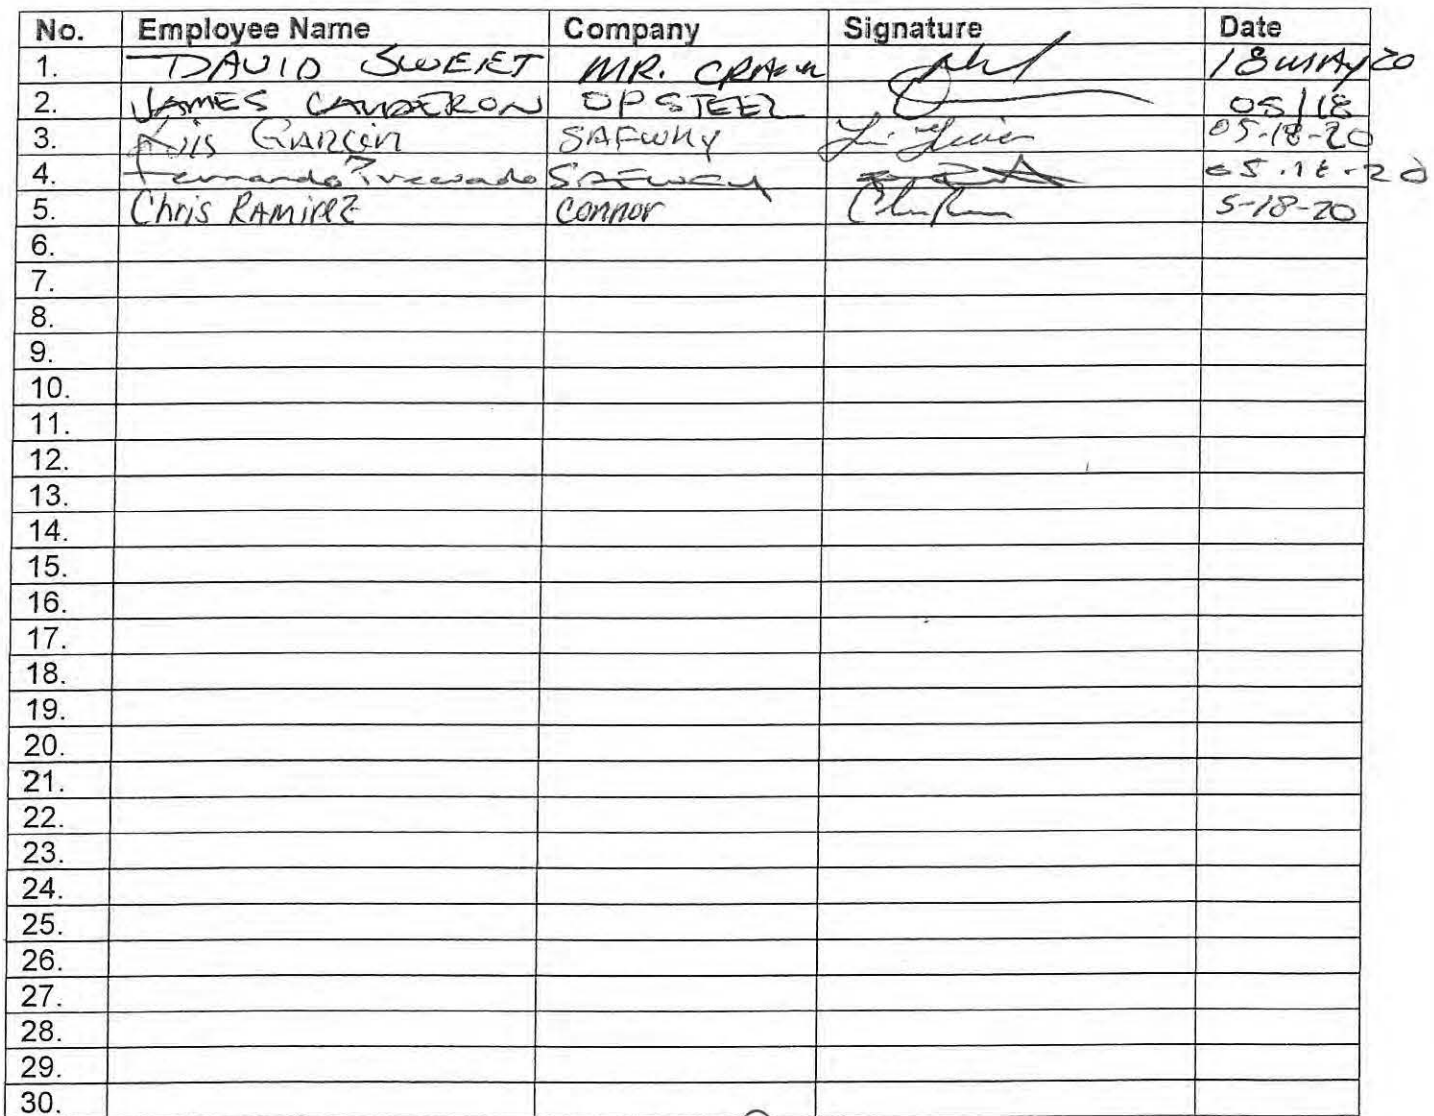 No. Employee Name Company Signature Date
1. DAVID SWEET MR. CRANE 18 MAY 20
2. JAMES CALDERON OP STEEL 05/18
3. Luis GARCIA SAFWAY 05-18-20
4. Fernando SAFWAY 05-18-20
5. Chris RAMIREZ Connor 5-18-20
6.
7.
8.
9.
10.
11.
12.
13.
14.
15.
16.
17.
18.
19.
20.
21.
22.
23.
24.
25.
26.
27.
28.
29.
30.